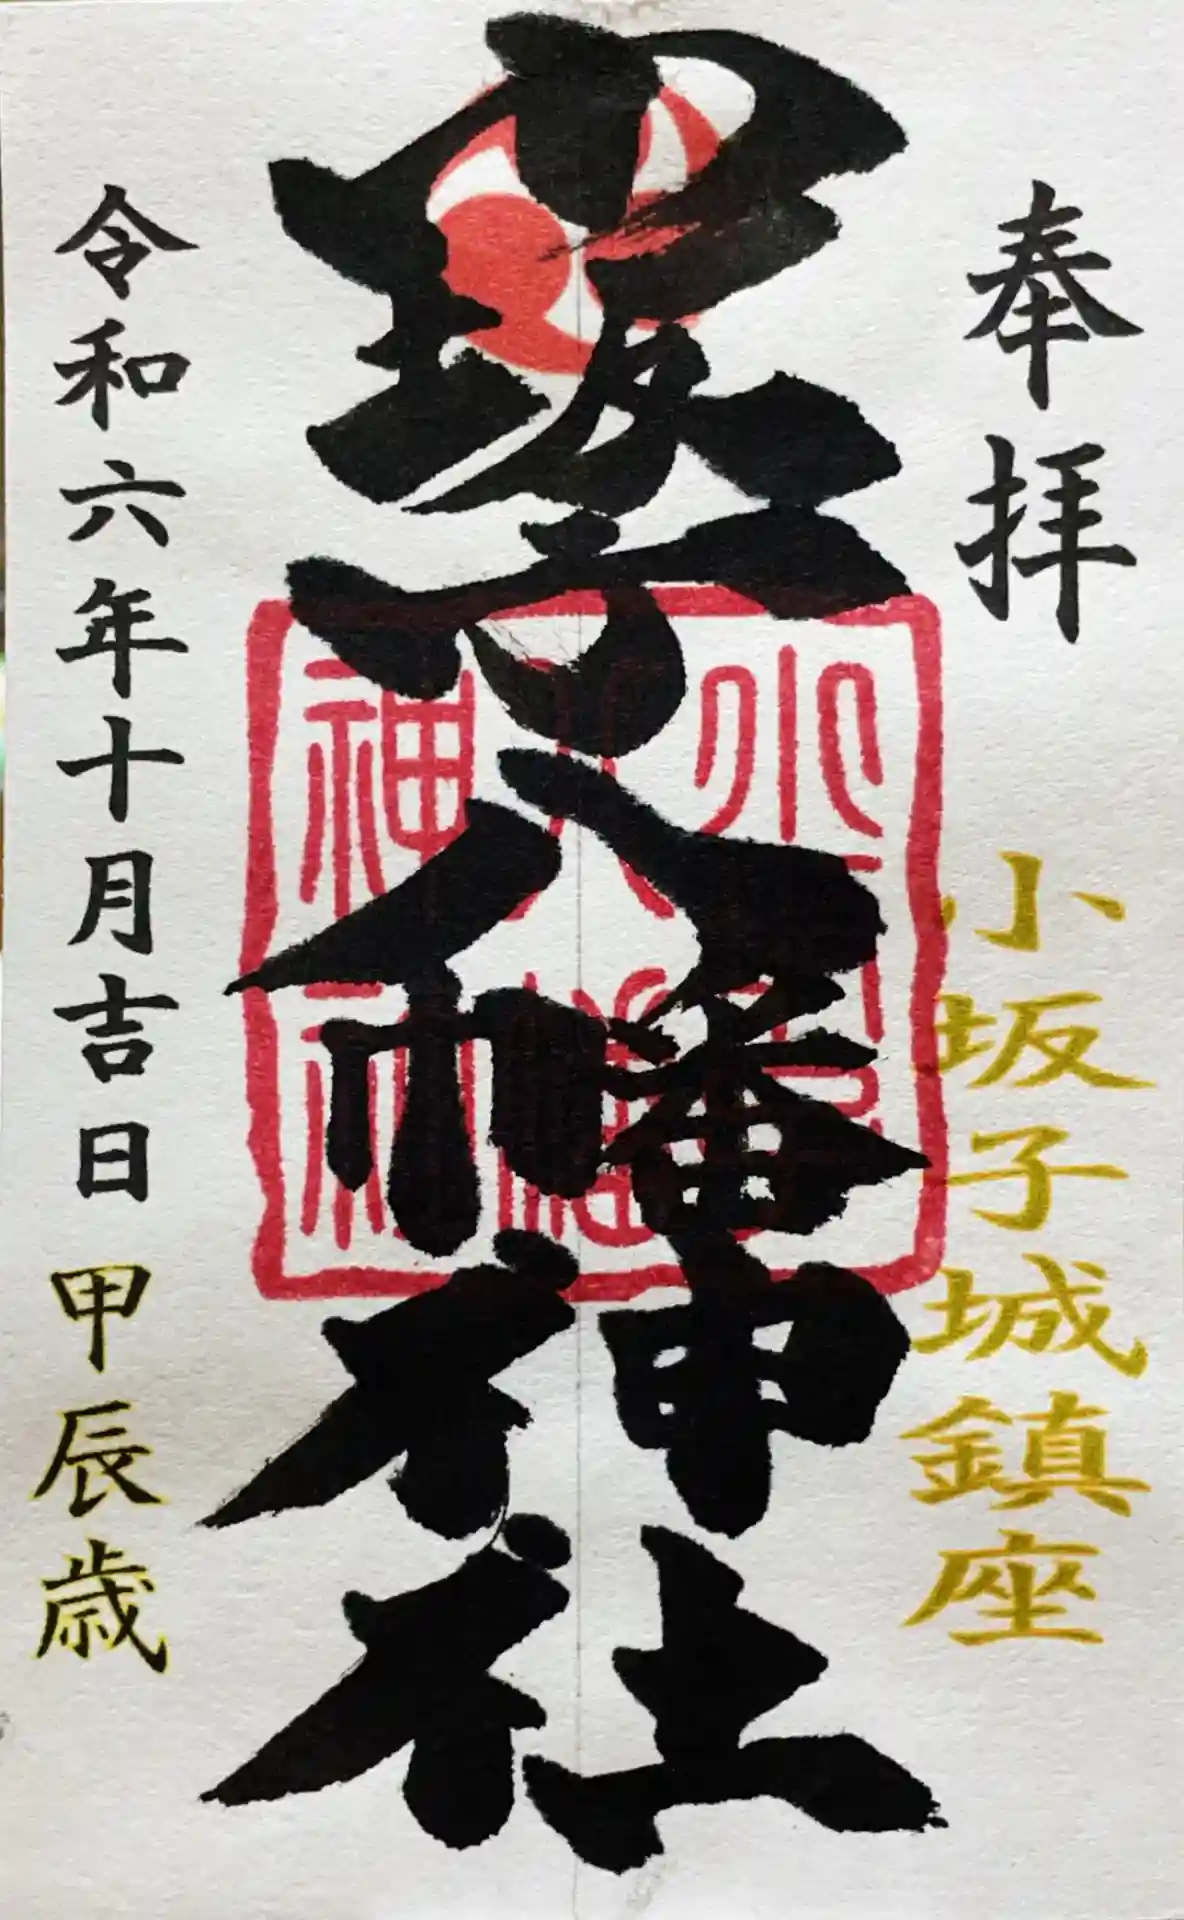 奉拝
小坂子城鎮座
小坂子八幡神社
令和六年十月吉日 甲辰歳